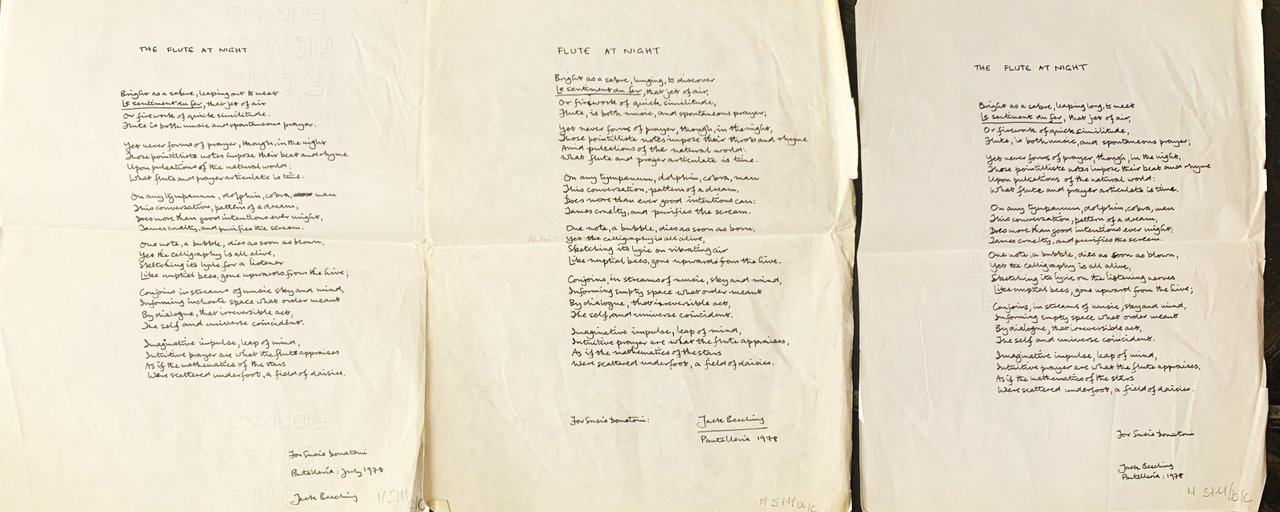 THE FLUTE AT NIGHT
Bright as a sabre, leaping out to meet
Le sentiment du fer, that jet of air
Or firework of quick similitude.
Flute is both music and spontaneous prayer.
Yet never forms of prayer, though, in the night
Those pointilliste notes impose their beat and rhyme
Upon pulsations of the natural world:
What flute and prayer articulate is time.
On any tympanum, dolphin, cobra, man
This conversation, pattern of a dream,
Does more than good intentions ever might,
Tames cruelty, and purifies the scream.
One note, a bubble, dies as soon as blown,
Yet the calligraphy is all alive,
Sketching its lyric for a listener
Like nuptial bees, gone upwards from the hive;
Conjoins in streams of music sky and mind,
Informing inchoate space what order meant
By dialogue, that irreversible act,
The self and universe coincident.
Imaginative impulse, leap of mind,
Intuitive prayer are what the flute appraises
As if the mathematics of the stars
Were scattered underfoot, a field of daisies.
For Susie Donatoni
Pantelleria: July 1978
Jack Beeching
MS111/b/c
FLUTE AT NIGHT
Bright as a sabre, lunging, to discover
Le sentiment du fer, that jet of air,
Or firework of quick similitude,
Flute, is both music, and spontaneous prayer;
Yet never forms of prayer, though, in the night,
Those pointilliste notes impose their throb and rhyme
Amid pulsations of the natural world:
What flute and prayer articulate is time.
On any tympanum, dolphin, cobra, man
This conversation, pattern of a dream,
Does more than ever good intentions can:
Tames cruelty, and purifies the scream.
One note, a bubble, dies as soon as born,
Yet the calligraphy is all alive,
Sketching its lyric on vibrating air
Like nuptial bees, gone upwards from the hive.
Conjoins, in streams of music, sky and mind,
Informing empty space what order meant
By dialogue, that irreversible act,
The self, and universe coincident.
Imaginative impulse, leap of mind,
Intuitive prayer are what the flute appraises,
As if the mathematics of the stars
Were scattered underfoot, a field of daisies.
For Susie Donatoni:
Jack Beeching
Pantelleria 1978
MS111a/c
THE FLUTE AT NIGHT
Bright as a sabre, leaping long, to meet
Le sentiment du fer, that jet of air,
Or firework of quick similitude,
Flute, is both music, and spontaneous prayer;
Yet never forms of prayer, though, in the night,
Those pointilliste notes impose their beat and rhyme
Upon pulsations of the natural world:
What flute and prayer articulate is time.
On any tympanum, dolphin, cobra, man
This conversation, pattern of a dream,
Does more than good intentions ever might:
Tames cruelty, and purifies the scream.
One note, a bubble, dies as soon as blown,
Yet the calligraphy is all alive,
Sketching its lyric on the listening nerves
Like nuptial bees, gone upward from the hive;
Conjoins, in streams of music, sky and mind,
Informing empty space what order meant
By dialogue, that irreversible act,
The self and universe coincident.
Imaginative impulse, leap of mind,
Intuitive prayer are what the flute appraises,
As if the mathematics of the stars
Were scattered underfoot, a field of daisies.
For Susie Donatoni
Jack Beeching
Pantelleria: 1978
MS111/b/c